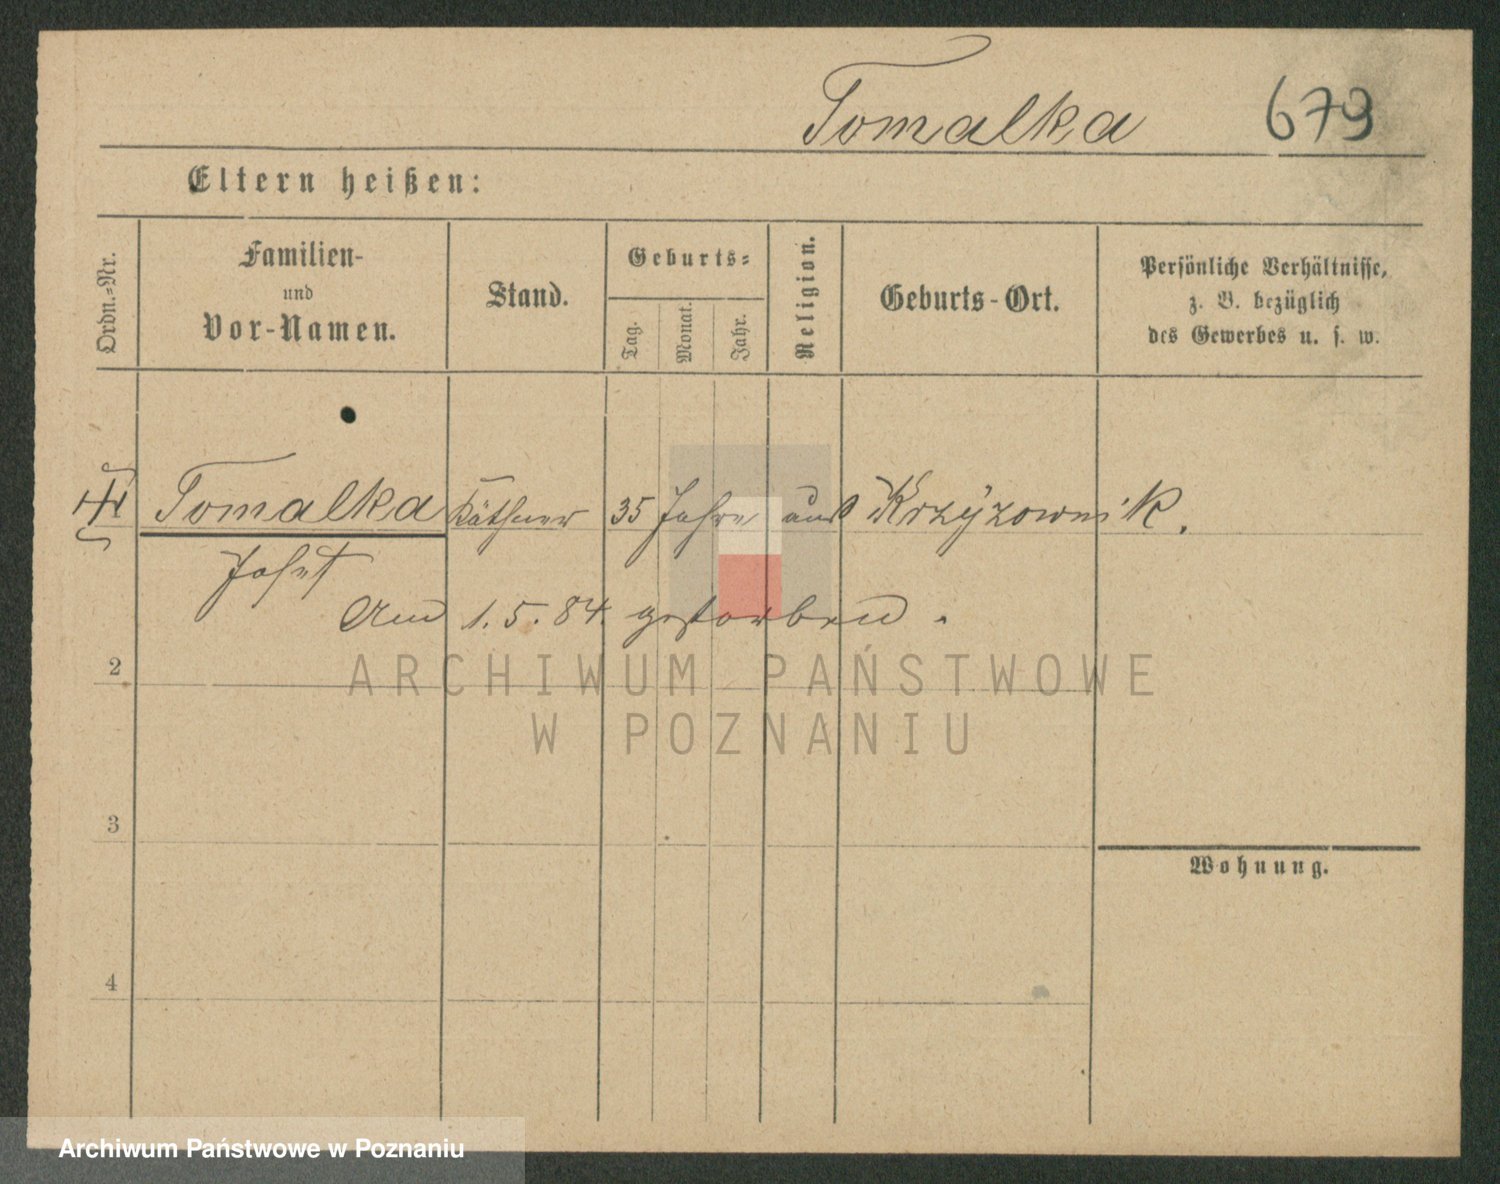 Tomalka 679
Eltern heißen:
Ordn.-Nr.
Familien-
und
Vor-Namen.
Stand.
Geburts-
Tag.
Monat.
Jahr.
Religion.
Geburts-Ort.
Persönliche Verhältnisse,
z. B. bezüglich
des Gewerbes u. s. w.
Tomalka Käthner 35 Jahre aus Krzyżownik.
Josef
Am 1.5.84. gestorben.
2
ARCHIWUM PAŃSTWOWE
W POZNANIU
3
Wohnung.
4
Archiwum Państwowe w Poznaniu